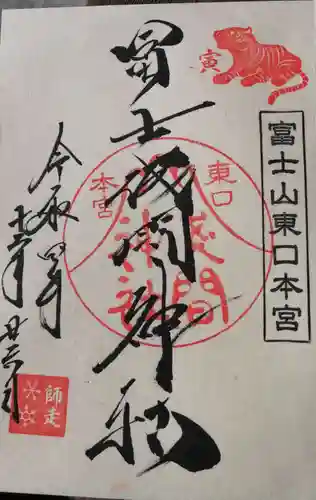 寅
富士山東口本宮
冨士浅間神社
東口
本宮
淺間
神社
令和四年
十二月廿六日
師走